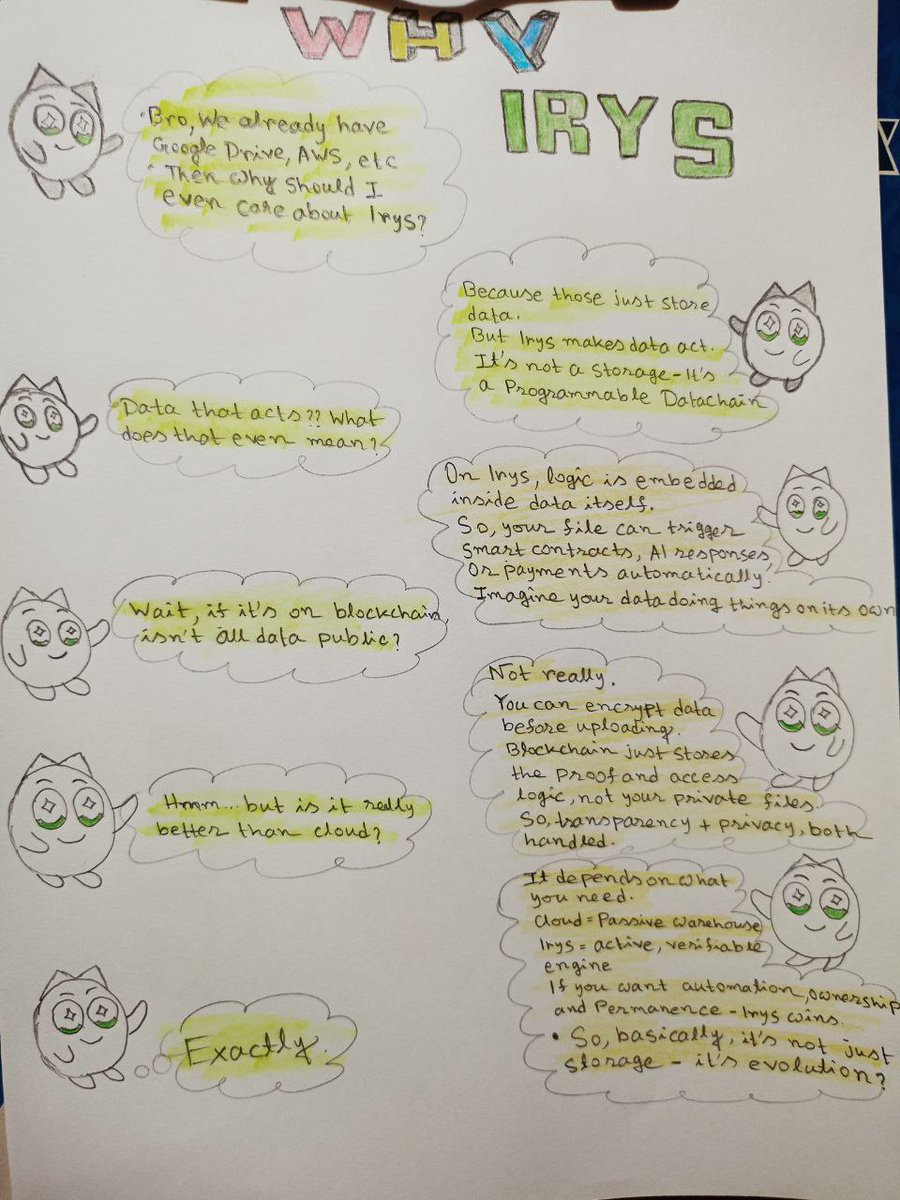 WHY
IRYS
• Bro, We already have
Google Drive, AWS, etc
• Then why should I
even care about Irys?
Because those just store
data.
But Irys makes data act.
It's not a storage - It's
a Programmable Datachain
Data that acts?? What
does that even mean?
On Irys, logic is embedded
inside data itself.
So, your file can trigger
smart contracts, AI responses,
Or payments automatically.
Imagine your data doing things on its own
Wait, if it's on blockchain,
isn't all data public?
Not really.
You can encrypt data
before uploading.
Blockchain just stores
the proof and access
logic, not your private files.
So, transparency + privacy, both
handled.
Hmm... but is it really
better than cloud?
It depends on what
you need.
Cloud = Passive warehouse
Irys = active, verifiable
engine
If you want automation, ownership
and Permanence - Irys wins.
• So, basically, it's not just
storage - it's evolution?
Exactly.